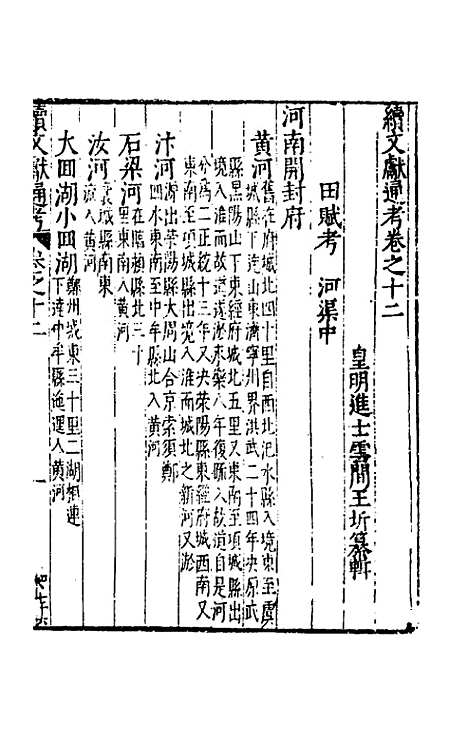 續文獻通考卷之十二
皇明進士雲間王圻纂輯
田賦考　河渠中
河南開封府
黃河舊在府城北四十里自西北汜水縣入境東至虞
城縣下達山東濟寧州界洪武二十四年決原武
縣黑陽山下東經府城北五里又東南至項城縣出
境入淮而故道遂淤永樂八年復縣入故道自是河
分爲二正統十三年又決滎陽縣東經府城西南又
東南至項城縣出境入淮而城北之新河又淤
汴河源出滎陽縣大周山合京索須鄭
四水東南至中牟縣北入黃河
石梁河在臨潁縣北三十
里東南入黃河
汝河在襄城縣南東
流入黃河
大回湖小回湖鄭州城東三十里二湖相連
下達中牟縣迤邐入黃河
續文獻通考
卷之十二
一